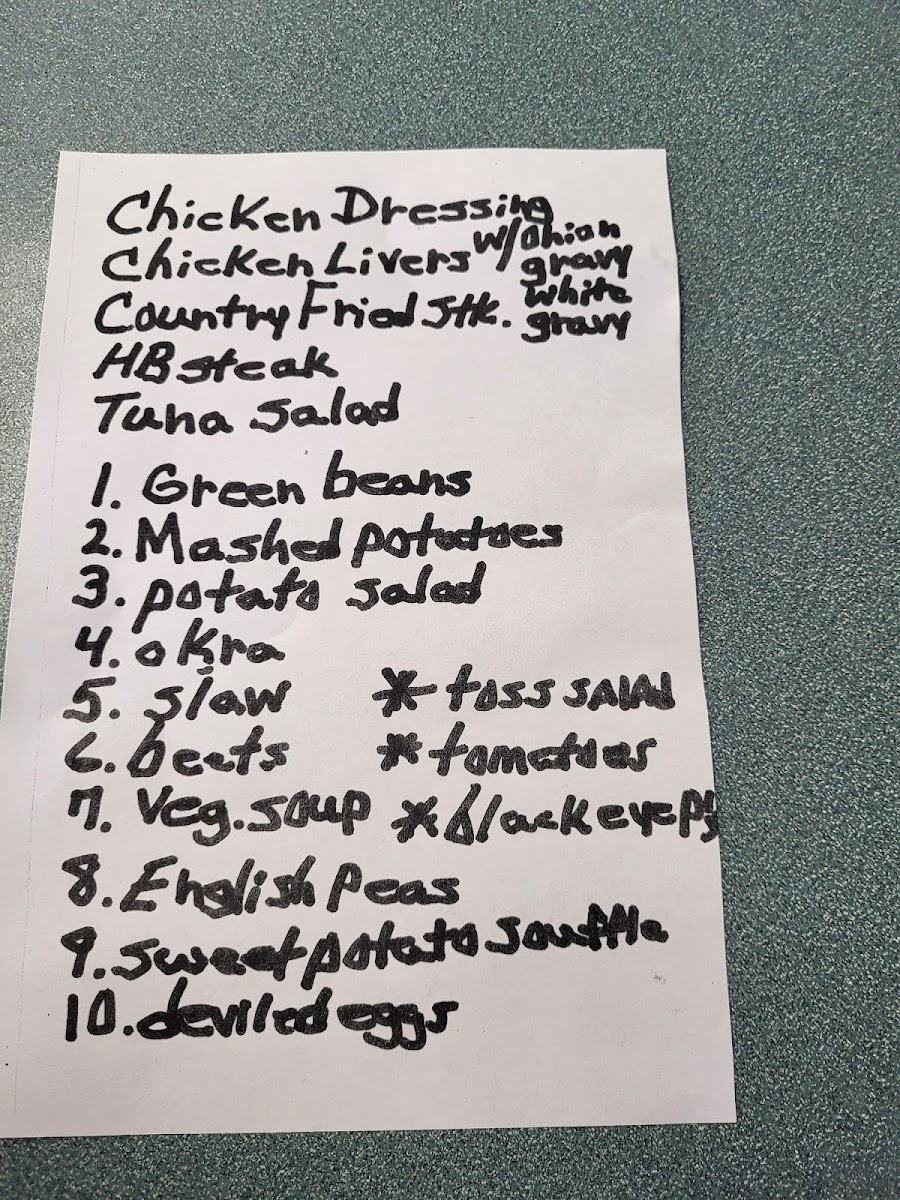 Chicken Dressing
Chicken Livers w/onion gravy
Country Fried stk. white gravy
HB steak
Tuna salad
1. Green beans
2. Mashed potatoes
3. potato salad
4. okra
5. slaw * toss SALAD
6. beets * tomatoes
7. Veg. soup * black eye ps
8. English peas
9. sweet potato souffle
10. deviled eggs